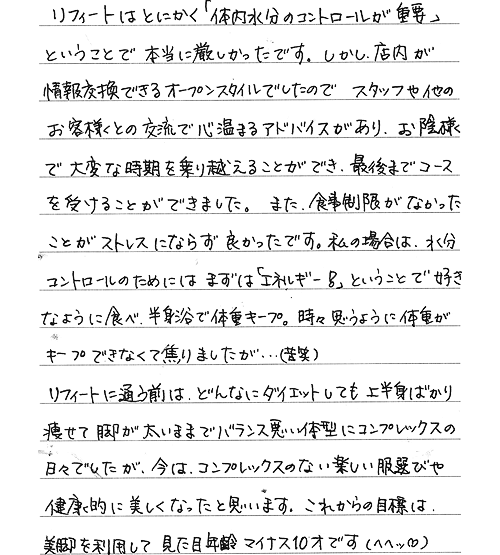 リフィートはとにかく「体内水分のコントロールが重要」
ということで本当に厳しかったです。しかし、店内が
情報交換できるオープンスタイルでしたので スタッフや他の
お客様との交流で心温まるアドバイスがあり、お陰様
で大変な時期を乗り越えることができ、最後までコース
を受けることができました。また、食事制限がなかった
ことがストレスにならず良かったです。私の場合は、水分
コントロールのためにはまずは「エネルギー8」ということで好き
なように食べ、半身浴で体重キープ。時々思うように体重が
キープできなくて焦りましたが…(苦笑)
リフィートに通う前は、どんなにダイエットしても上半身ばかり
痩せて脚が太いままでバランス悪い体型にコンプレックスの
日々でしたが、今は、コンプレックスのない楽しい服選びや
健康的に美しくなったと思います。これからの目標は、
美脚を利用して見た目年齢マイナス10才です(へへッ♡)